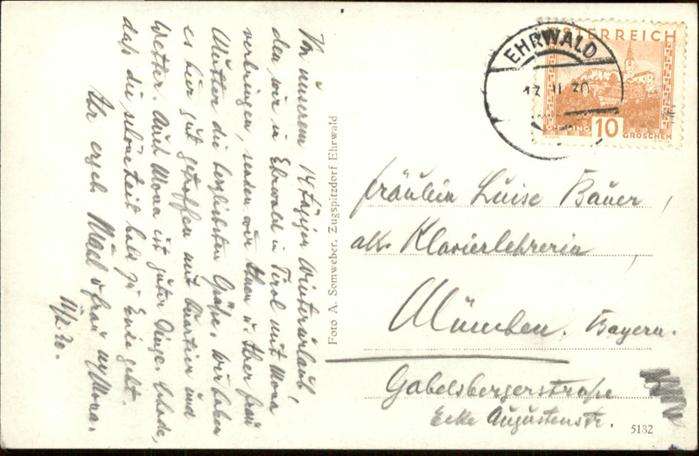 Von unserem 14tägigen Winterurlaub,
den wir in Ehrwald in Tirol mit Mona
verbringen, senden wir Ihnen u. Ihrer Frau
Mutter die herzlichsten Grüße. Wir haben
es hier gut getroffen mit Quartier und
Wetter. Auch Mona ist guter Dinge. Schade,
daß die schöne Zeit bald zu Ende geht.
Ihr ergeb. u. Frau Mona.
Foto A. Somweber, Zugspitzdorf Ehrwald
ÖSTERREICH
EHRWALD
10
GROSCHEN
Fräulein Luise Bauer,
Klavierlehrerin
München. Bayern.
Gabelsbergerstraße
Ecke Augustenstr.
5182